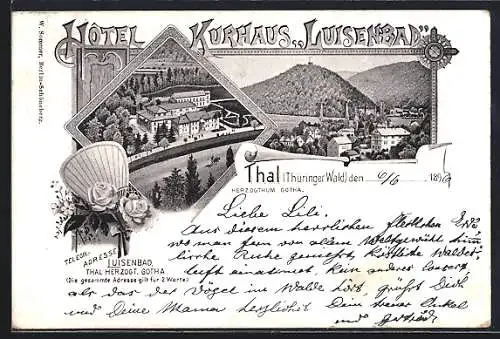 HÔTEL KURHAUS „LUISENBAD"
W. Sommer, Berlin-Schöneberg.
Thal (Thüringer Wald) den 6/6 189
HERZOGTHUM GOTHA.
TELEGR.
ADRESSE
LUISENBAD,
THAL HERZOGT. GOTHA
(Die gesammte Adresse gilt für 2 Worte)
Liebe Lili.
Aus diesem herrlichen Fleckchen Erde
wo man fern von allem Weltgewühl
liche Ruhe genießt, köstliche Waldes-
luft einatmet, kein anderes Concert
als das der Vögel im Walde hört, grüßt Dich
und Deine Mama herzlichst Dein treuer Onkel
und